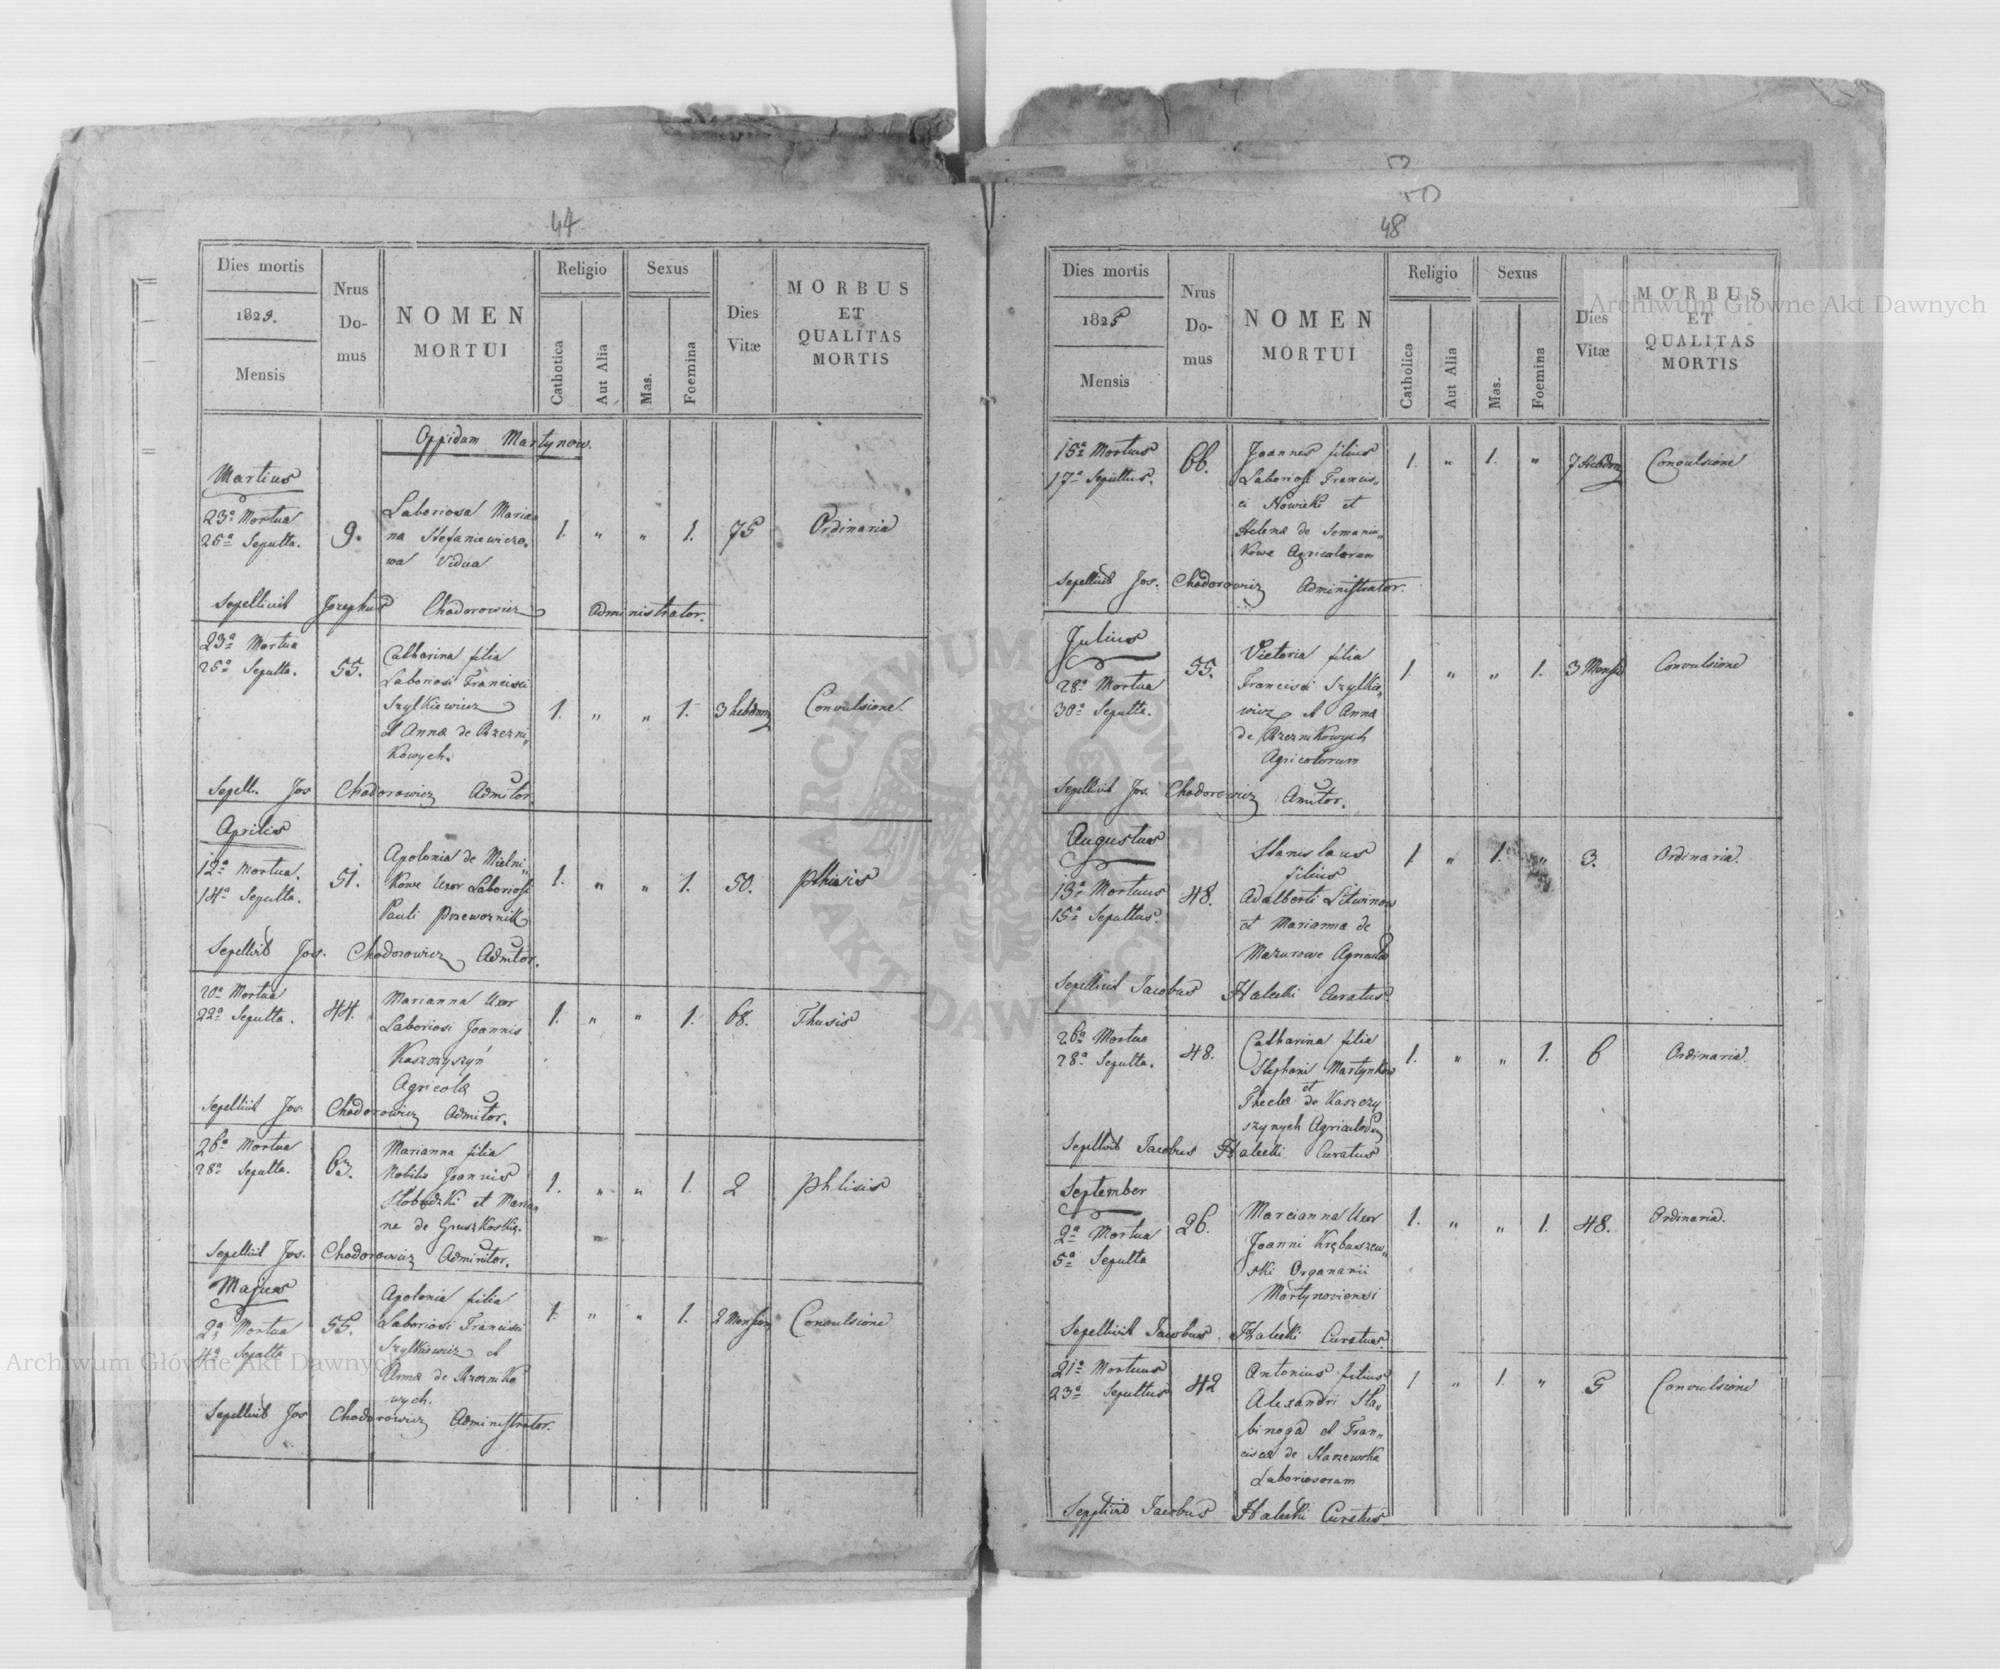 44
Dies mortis
1829.
Mensis
Nrus
Do-
mus
NOMEN
MORTUI
Religio
Catholica
Aut Alia
Sexus
Mas.
Foemina
Dies
Vitæ
MORBUS
ET
QUALITAS
MORTIS
Oppidum Martynow.
Martius
23a Mortua
25a Sepulta.
9.
Laboriosa Maria-
na Stefaniewiczo-
wa Vidua
1. " " 1. 75 Ordinaria
Sepelivit Josephus Chodorowicz Administrator.
23a Mortua
25a Sepulta.
55.
Catharina filia
Laboriosi Francisci
Szylkiewicz
et Annæ de Rzerni„
kowych.
1. " " 1. 3 hebdom Convulsione.
Sepell. Jos Chodorowicz Admitor.
Aprilis
12a Mortua.
14a Sepulta.
51.
Apolonia de Mielni„
kowe Uxor Laboriosi
Pauli Przewoznik
1. " " 1. 50. Phisis
Sepelivit Jos. Chodorowicz Admitor.
20a Mortua
22a Sepulta.
44.
Marianna Uxor
Laboriosi Joannis
Kaszczyszyń
Agricolæ
1. " " 1. 68. Thusis
Sepellivit Jos. Chodorowicz Admitor.
26a Mortua
28a Sepulta.
63.
Marianna filia
Nobilis Joannis
Slobudzki et Marian
ne de Gruszkoskie.
1. " " 1. 2 Phlisis
Sepellivit Jos. Chodorowicz Adminitor.
Majus
2a Mortua
4a Sepulta
55.
Apolonia filia
Laboriosi Francisci
Szylkiewicz et
Annæ de Rzerniko
wych.
1. " " 1. 2 Mensium Convulsione
Sepellivit Jos Chodorowicz Administrator.
48
Dies mortis
1825
Mensis
Nrus
Do-
mus
NOMEN
MORTUI
Religio
Catholica
Aut Alia
Sexus
Mas.
Foemina
Dies
Vitæ
MORBUS
ET
QUALITAS
MORTIS
15a Mortuus
17a Sepultus.
66.
Joannes filius
Laboriosi Francis-
ci Nowicki et
Helenæ de Semaniu„
kowe Agricolarum
1. " 1. " 7 Hebdom Convulsione
Sepellivit Jos. Chodorowicz Administrator.
Julius
28a Mortua
30a Sepulta.
55.
Victoria filia
Francisci Szylkie„
wicz et Annæ
de Rzernikowych
Agricolarum
1. " " 1. 3 Mensis Convulsione
Sepellivit Jos. Chodorowicz Amitor.
Augustus
13a Mortuus
15a Sepultus.
48.
Stanislaus
filius
Adalberti Litwinow
et Marianna de
Mazurowe
1. " 1. " 3. Ordinaria.
Sepellivit Jacobus Halecki Curatus
26a Mortua
28a Sepulta.
48.
Catharina filia
Stephani Martynkow
et
Theclæ de Kaszczy
szynych
1. " " 1. 6 Ordinaria.
Sepellivit Jacobus Halecki Curatus
September
2a Mortua
5a Sepulta
26.
Marcianna Uxor
Joanni Krębuszew„
ski Organarii
Martynoviensi
1. " " 1. 48. Ordinaria.
Sepellivit Jacobus Halecki Curatus.
21a Mortuus
23a Sepultus
42
Antonius filius
Alexandri Sla„
binoga et Fran„
ciscæ de Staszewska
Laboriosorum
1 " 1 " 5 Convulsione
Jacobus Halecki Curatus
Archiwum Główne Akt Dawnych
Archiwum Główne Akt Dawnych
ARCHIWUM GŁÓWNE AKT DAWNYCH